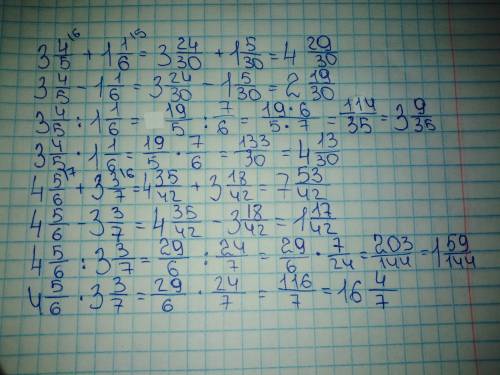 3 4/5 ⁶ + 1 1/6 ⁵ = 3 24/30 + 1 5/30 = 4 29/30
3 4/5 - 1 1/6 = 3 24/30 - 1 5/30 = 2 19/30
3 4/5 : 1 1/6 = 19/5 : 7/6 = 19·6/5·7 = 114/35 = 3 9/35
3 4/5 · 1 1/6 = 19/5 · 7/6 = 133/30 = 4 13/30
4 5/6 ⁷ + 3 3/7 ⁶ = 4 35/42 + 3 18/42 = 7 53/42
4 5/6 - 3 3/7 = 4 35/42 - 3 18/42 = 1 17/42
4 5/6 : 3 3/7 = 29/6 : 24/7 = 29/6 · 7/24 = 203/144 = 1 59/144
4 5/6 · 3 3/7 = 29/6 · 24/7 = 116/7 = 16 4/7